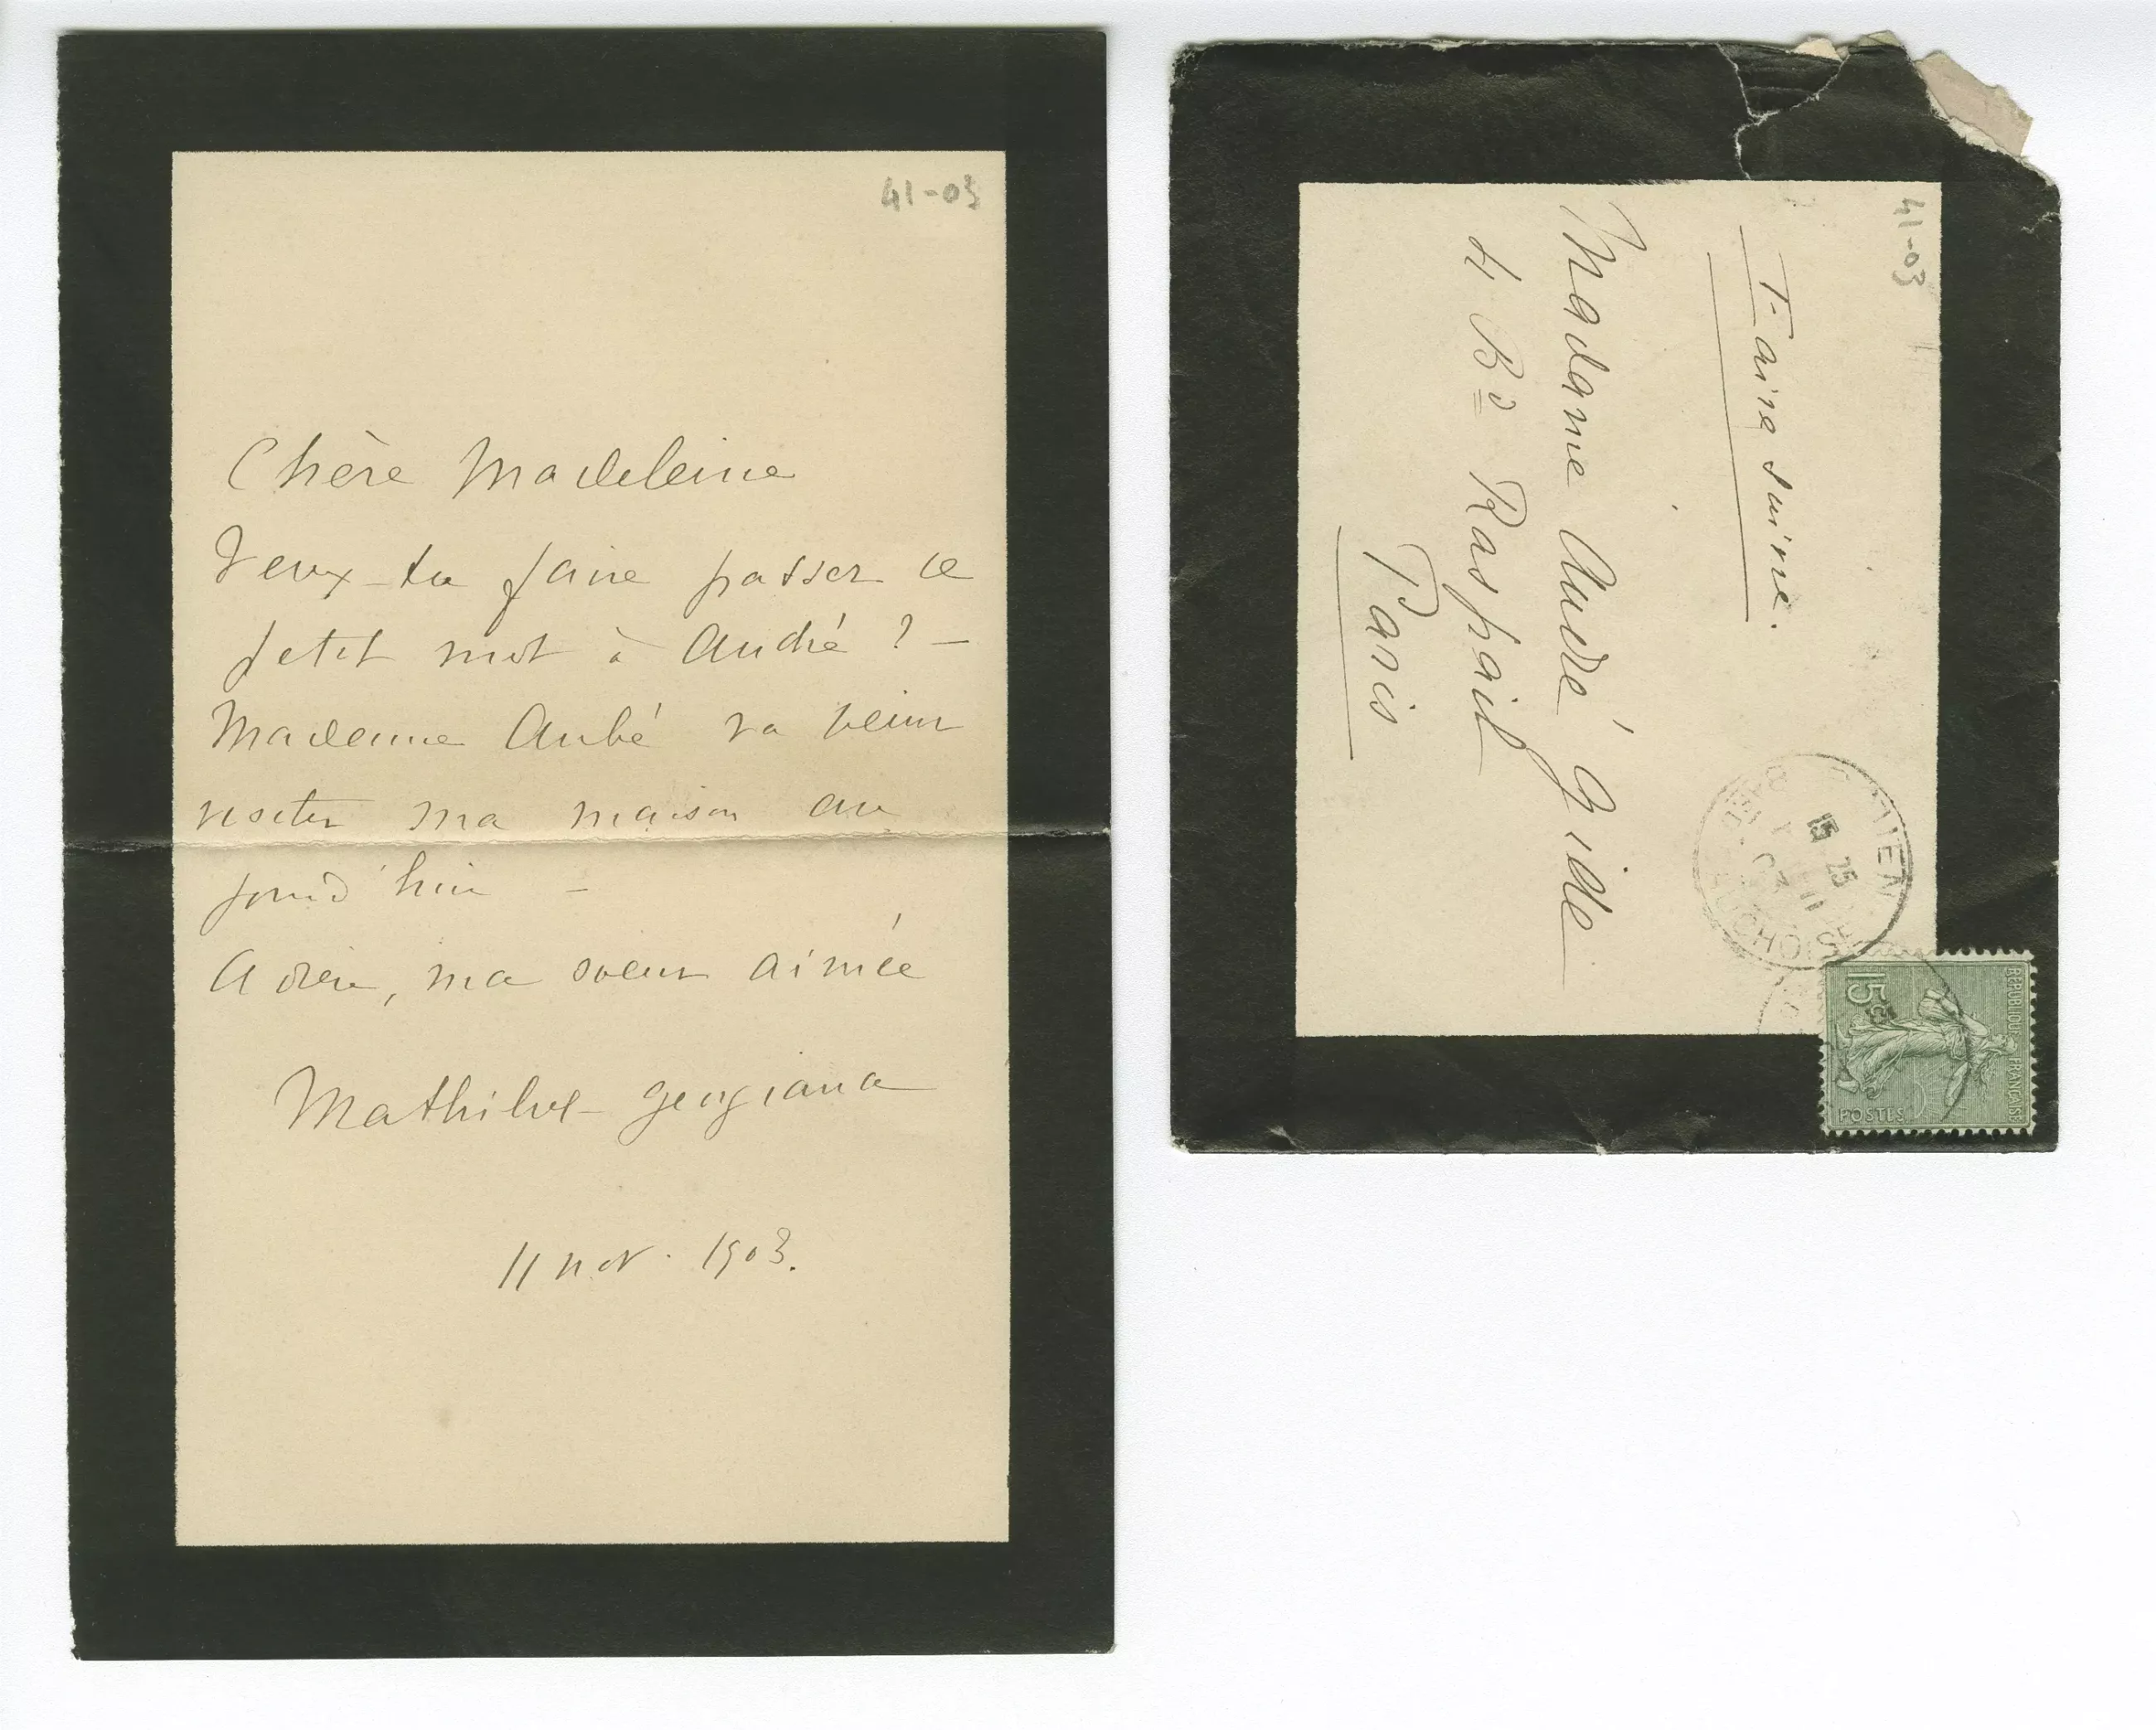 41-03
Chère Madeleine
Veux-tu faire passer ce
petit mot à André ? -
Madame Aubé va venir
visiter ma maison au
jourd'hui -
Adieu, ma soeur aimée
Mathilde-Georgiana
11 nov. 1903.
41-03
Faire suivre.
Madame André Gide
4 Bd Raspail
Paris
15 25
11
REPUBLIQUE FRANÇAISE
15c
POSTES